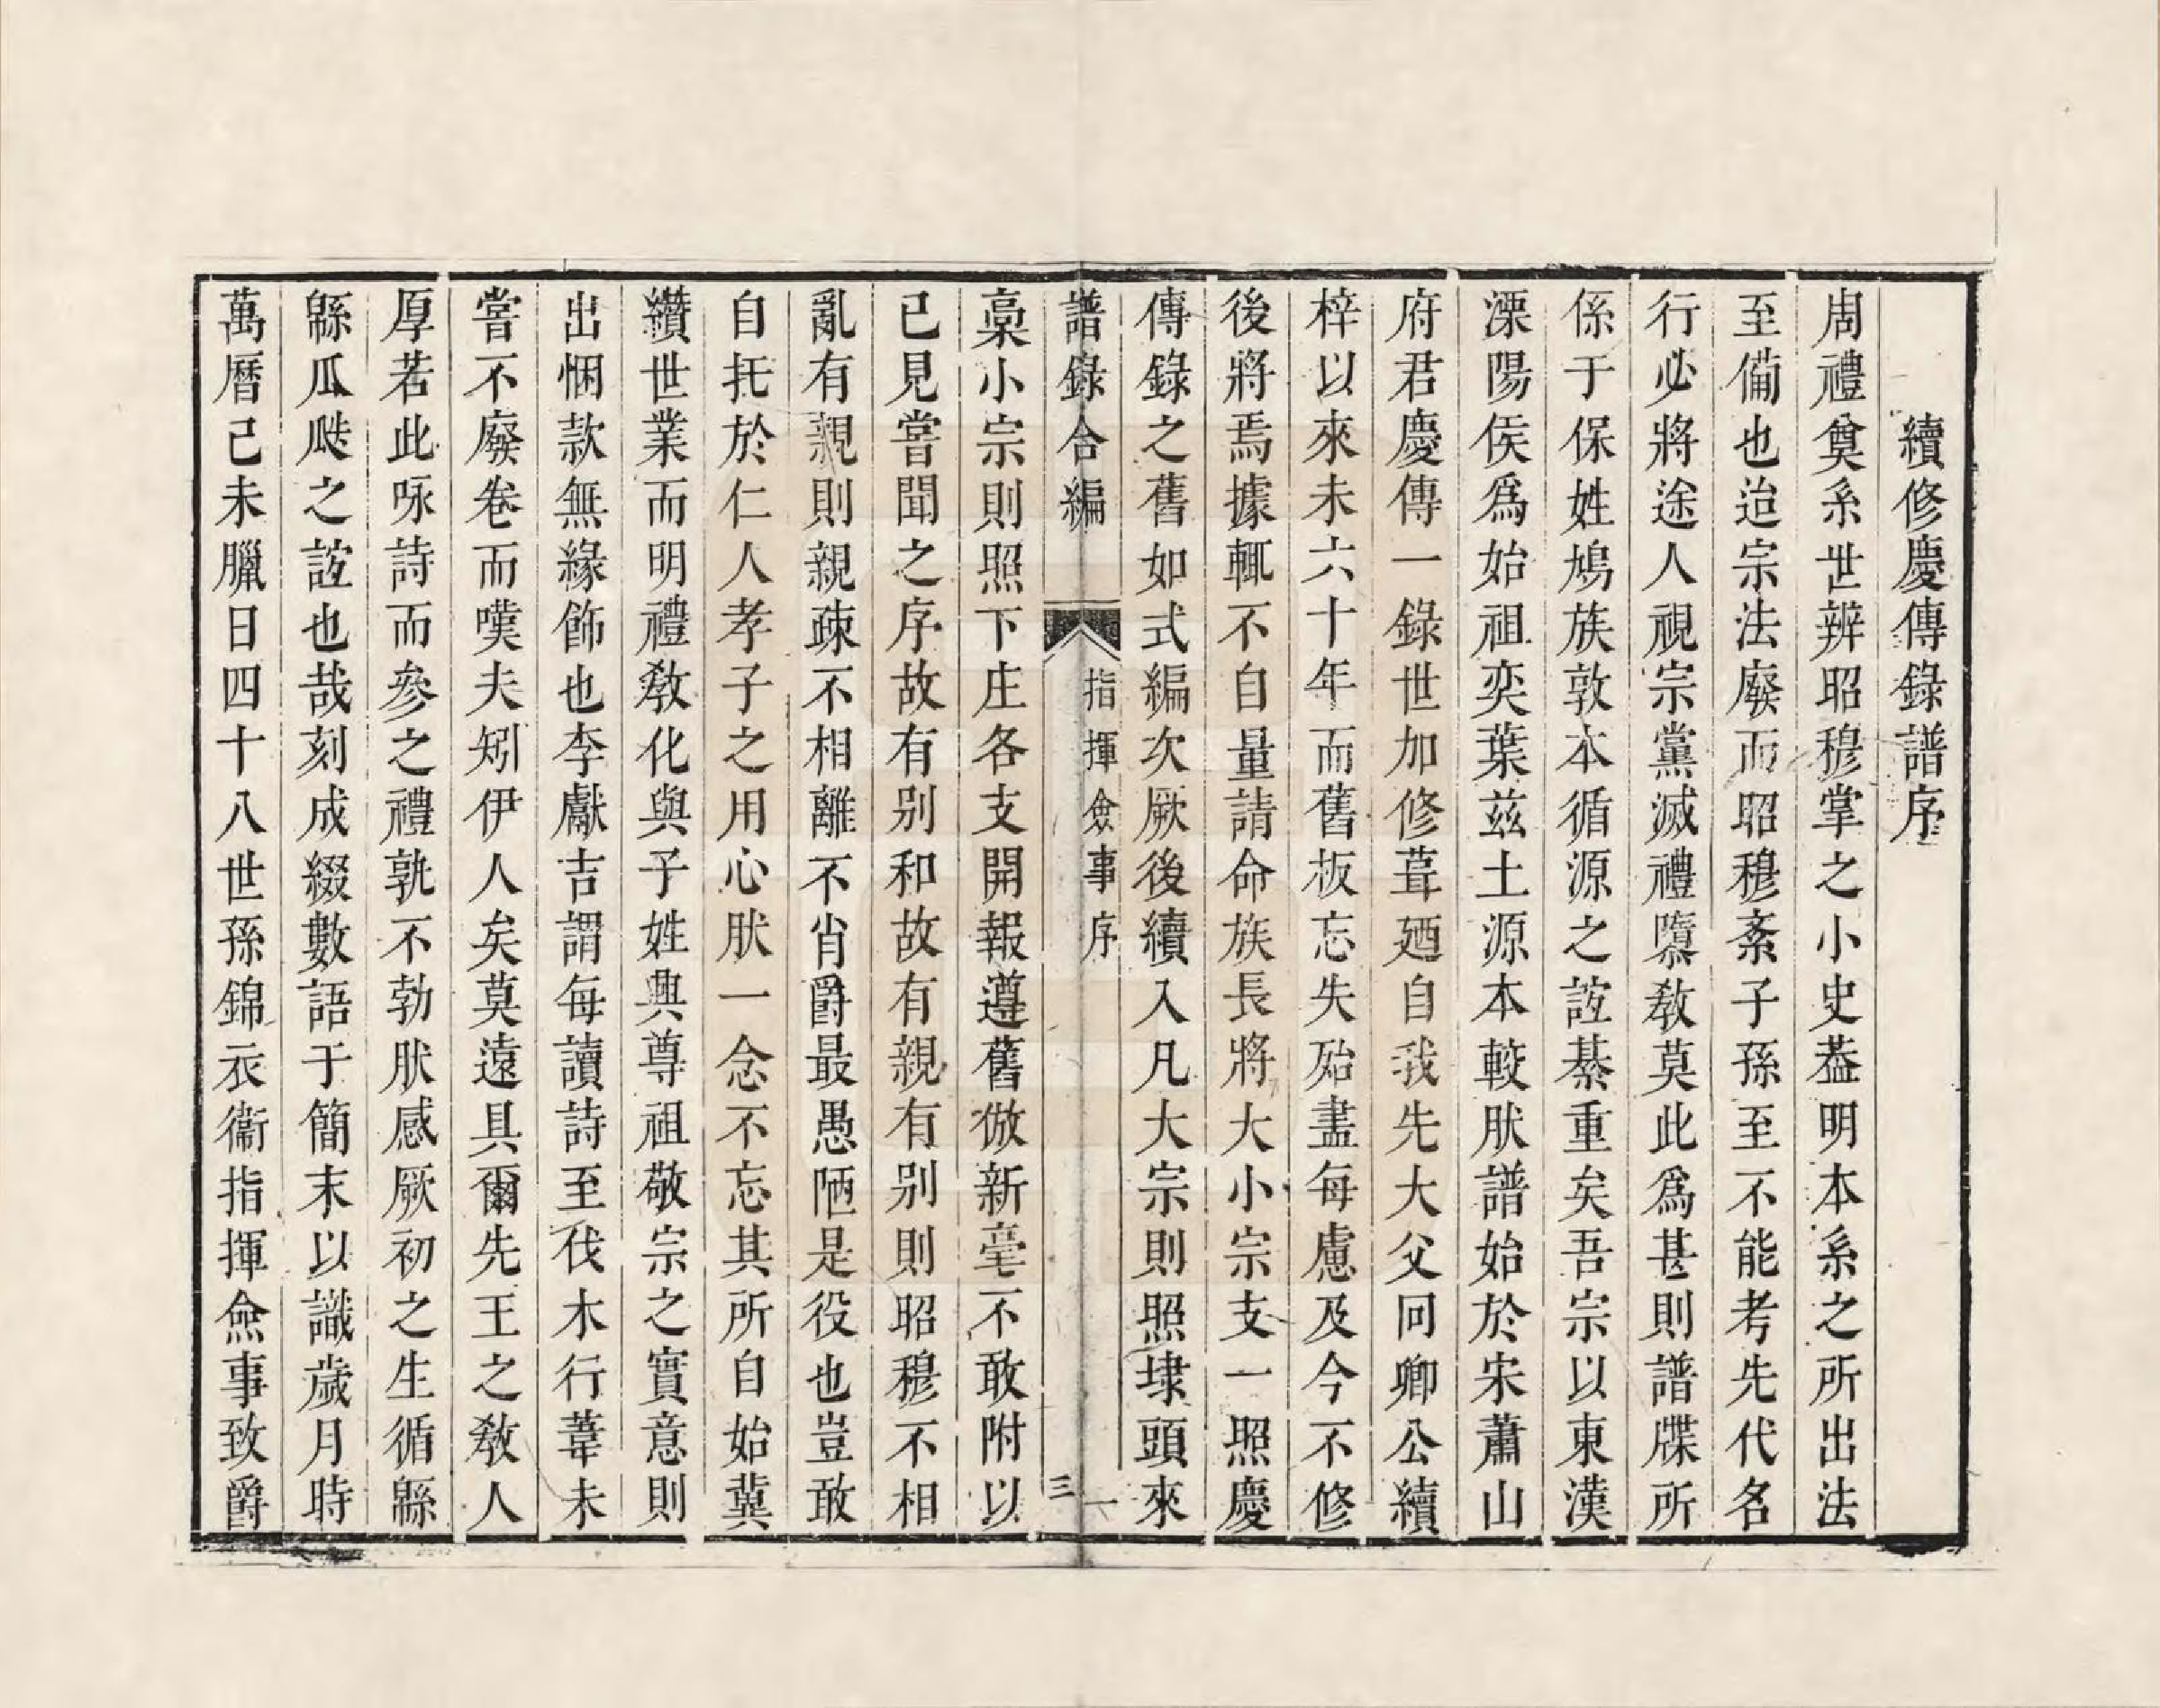 續修慶傳錄譜序
周禮奠系世辨昭穆掌之小史葢明本系之所出法
至備也迨宗法廢而昭穆紊子孫至不能考先代名
行必將途人視宗黨滅禮隳教莫此爲甚則譜牒所
係于保姓鳩族敦本循源之誼綦重矣吾宗以東漢
溧陽侯爲始祖奕葉兹土源本較肰譜始於宋蕭山
府君慶傳一錄世加修葺廼自我先大父冏卿公續
梓以來未六十年而舊板忘失殆盡每慮及今不修
後將焉據輒不自量請命族長將大小宗支一照慶
傳錄之舊如式編次厥後續入凡大宗則照埭頭來
譜錄合編
指揮僉事序
三
一
稾小宗則照下庄各支開報遵舊倣新毫不敢附以
已見嘗聞之序故有别和故有親有别則昭穆不相
亂有親則親疎不相離不肖爵最愚陋是役也豈敢
自托於仁人孝子之用心肰一念不忘其所自始冀
纘世業而明禮教化與子姓興尊祖敬宗之實意則
出悃款無緣飾也李獻吉謂每讀詩至伐木行葦未
嘗不廢卷而嘆夫矧伊人矣莫遠具爾先王之教人
厚若此咏詩而參之禮孰不勃肰感厥初之生循緜
緜瓜瓞之誼也哉刻成綴數語于簡末以識歲月時
萬曆己未臘日四十八世孫錦衣衞指揮僉事致爵